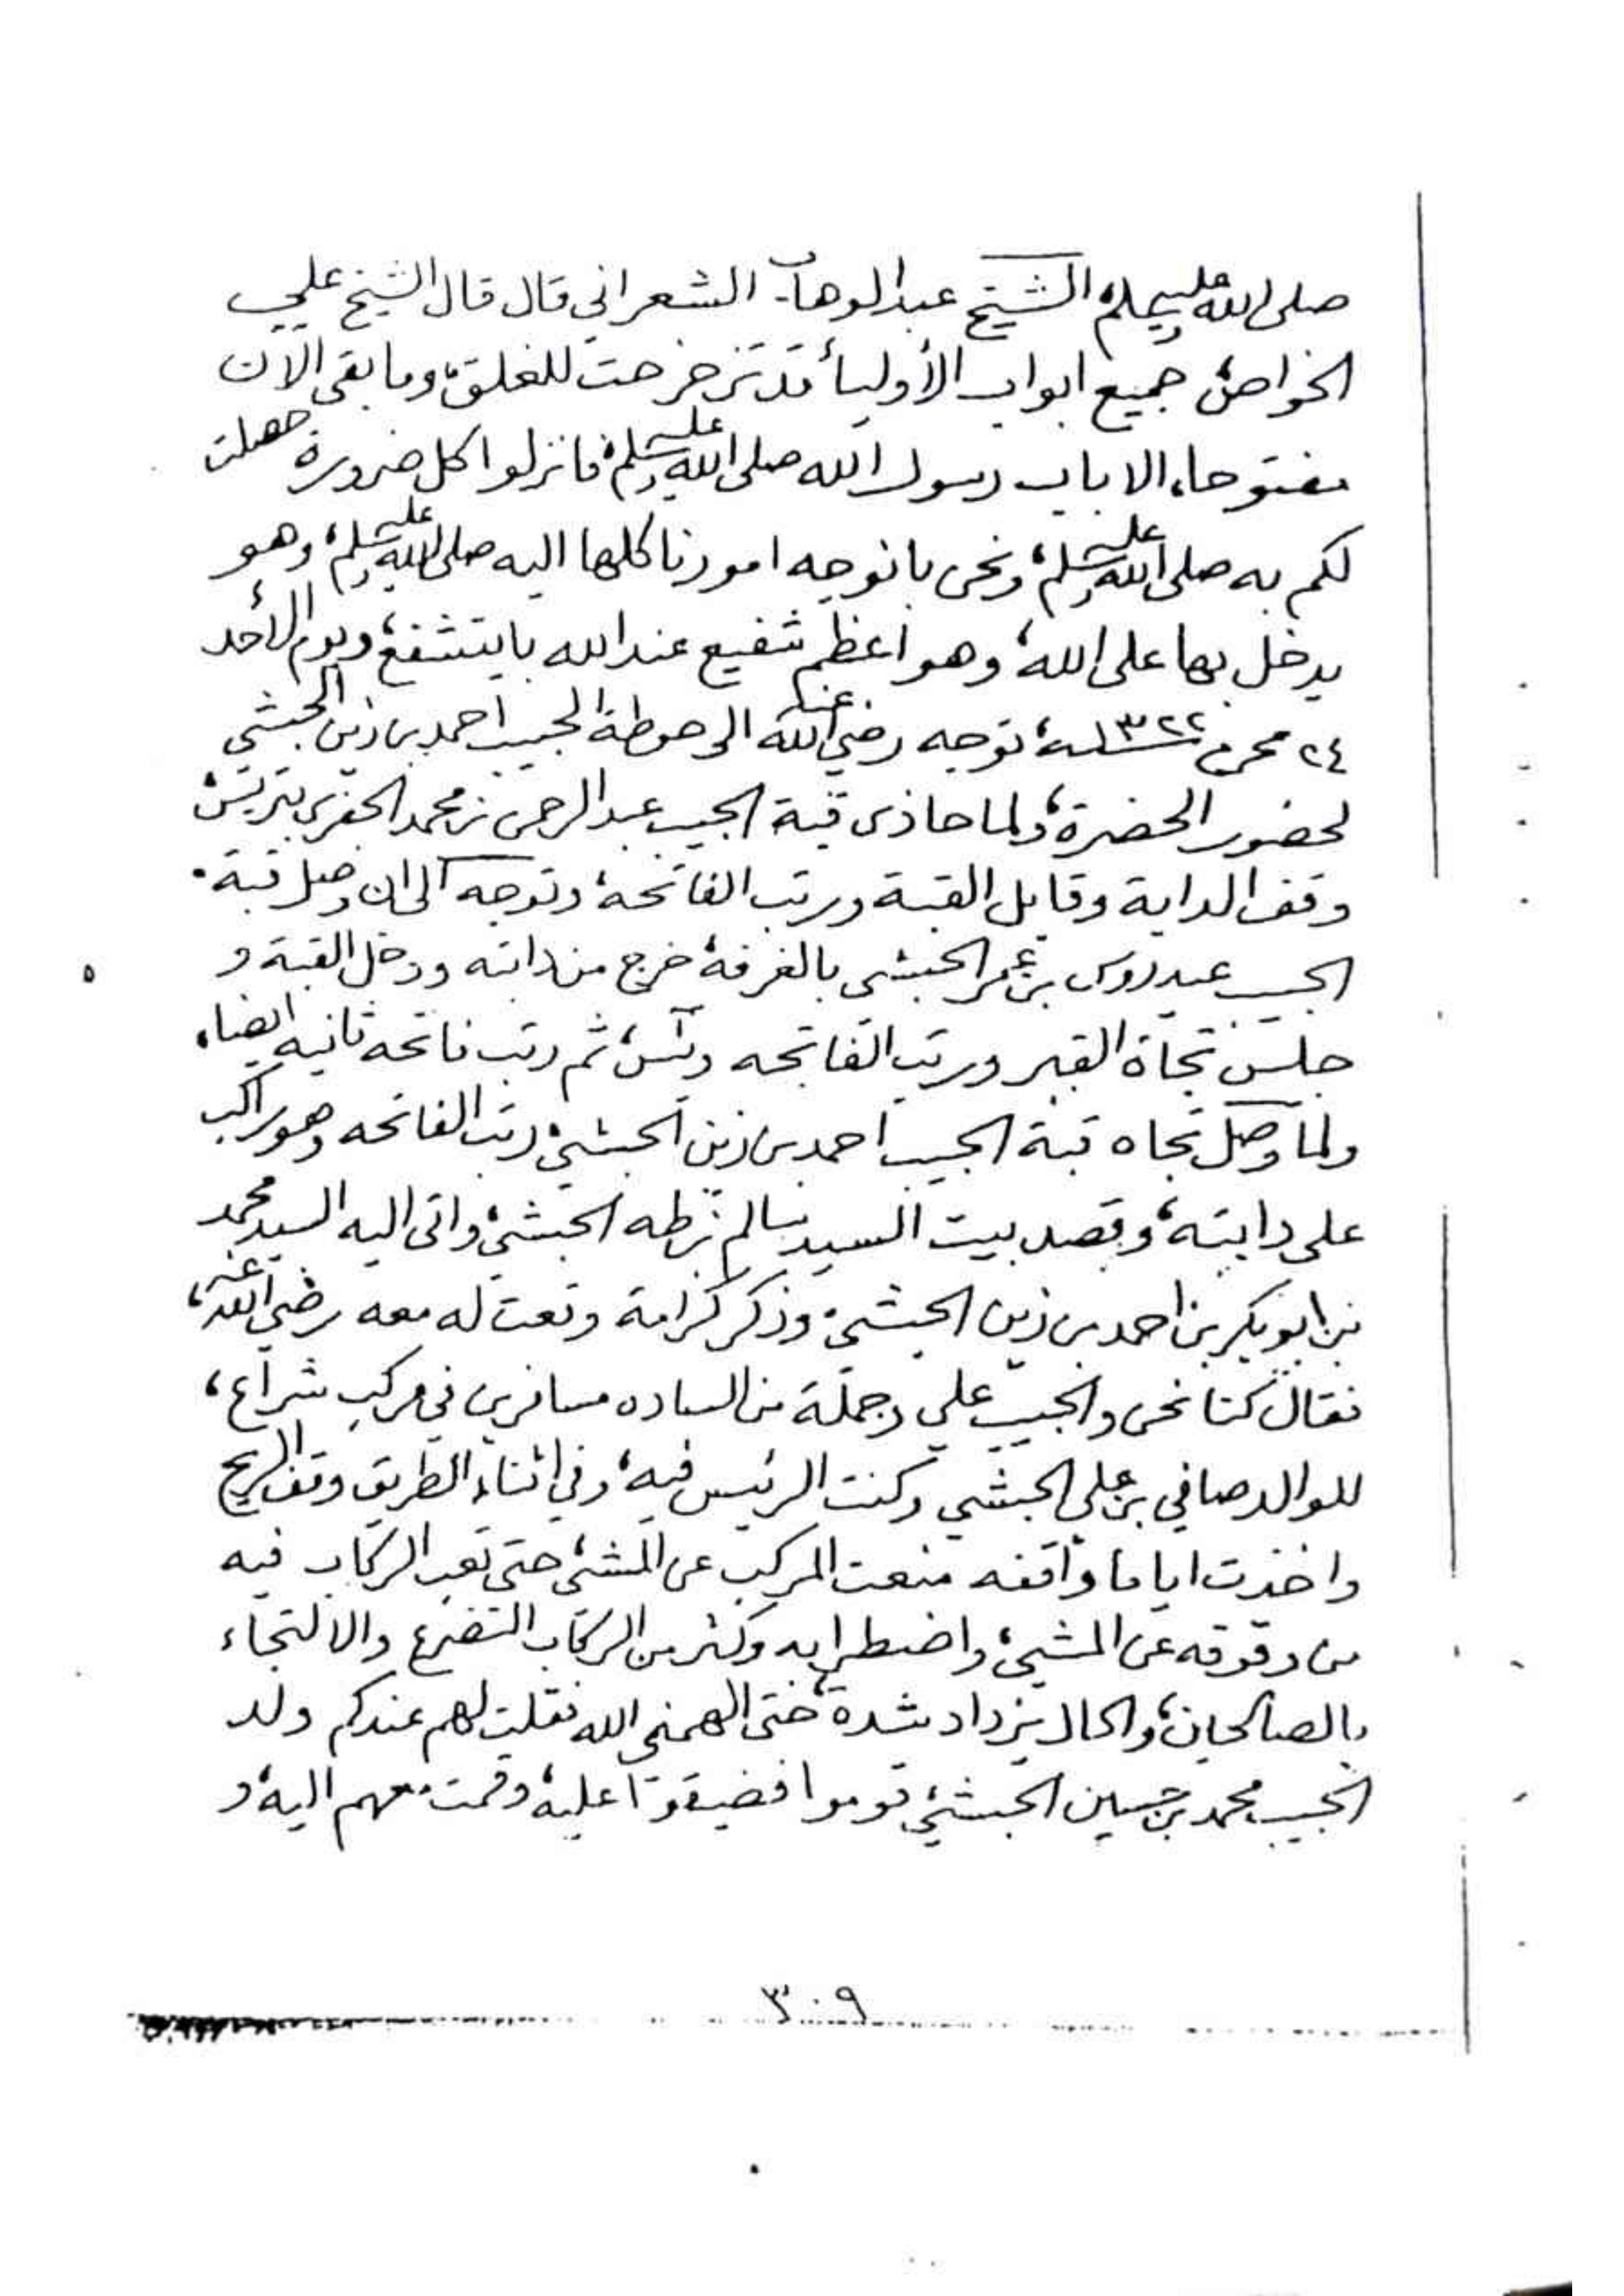 صلى الله عليه وسلم، الشيخ عبدالوهاب الشعراني قال قال الشيخ علي
الخواص، جميع ابواب الأولياء قد تزحزحت للغلق، وما بقى الآن
مفتوحا، الا باب رسول الله صلى الله عليه وسلم، فانزلوا كل ضرورة حصلت
لكم به صلى الله عليه وسلم، ونحن بانوجه امورنا كلها اليه صلى الله عليه وسلم، وهو
يدخل بها على الله، وهو اعظم شفيع عند الله بايتشفع، ويوم الأحد
٢٤ محرم سنة ١٣٢٢ توجه رضي الله عنه الى حوطة الحبيب احمد بن زين الحبشي
لحضور الحضرة، ولما حاذى قبة الحبيب عبدالرحمن بن محمد الجفري بتريس،
وقف الدابة وقابل القبة ورتب الفاتحة، وتوجه الى ان وصل قبة
الحبيب عيدروس بن عمر الحبشي بالغرفة، خرج من دابته ودخل القبة و
جلس تجاه القبر ورتب الفاتحه ويس، ثم رتب فاتحه ثانيه ايضا،
ولما وصل تجاه قبة الحبيب احمد بن زين الحبشي، رتب الفاتحه وهو راكب
على دابته، وقصد بيت السيد سالم بن طه الحبشي، واتى اليه السيد محمد
بن ابوبكر بن احمد بن زين الحبشي، وذكر كرامة وقعت له معه رضي الله عنه،
فقال كنا نحن والحبيب علي وجملة من الساده مسافرين في مركب شراع،
للوالد صافي بن علي الحبشي وكنت الرئيس فيه، وفي اثناء الطريق وقف الريح
واخذت اياما واقفه منعت المركب عن المشي، حتى تعب الركاب فيه
من وقوفه عن المشي، واضطرابه وكثر من الركاب التضرع والالتجاء
بالصالحين، والحال يزداد شدة، حتى الهمني الله فقلت لهم عندكم ولد
الحبيب محمد بن حسين الحبشي، قوموا فضيقوا عليه، وقمت معهم اليه، و
٣٠٩